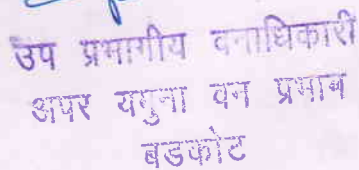 उप प्रभागीय वनाधिकारी
अपर यमुना वन प्रभाग
बडकोट